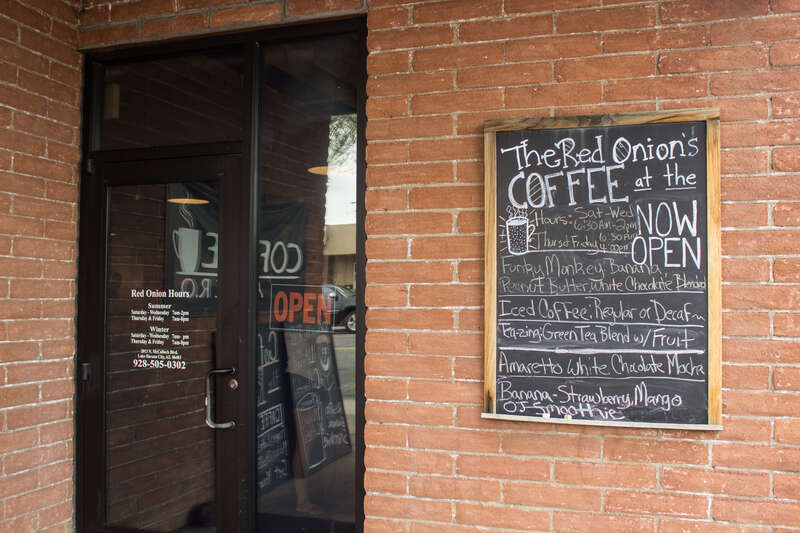 Red Onion Hours
Summer
Saturday - Wednesday 7am-2pm
Thursday & Friday 7am-8pm
Winter
Saturday - Wednesday 7am-
Thursday & Friday 7am-8pm
2013 N. McCulloch Blvd.
Lake Havasu City, AZ. 86403
928-505-0302
COFFE
OPEN
The Red Onion's
COFFEE at the
Hours: Sat-Wed
6:30AM-2pm
Thurs & Friday 6:30 AM
NOW
OPEN
Funky Monkey, Banana
Peanut Butter, White Chocolate Blended
Iced Coffee: Regular or Decaf
Tea-zing: Green Tea Blend w/ Fruit
Amaretto White Chocolate Mocha
Banana-Strawberry, Mango
OJ Smoothie